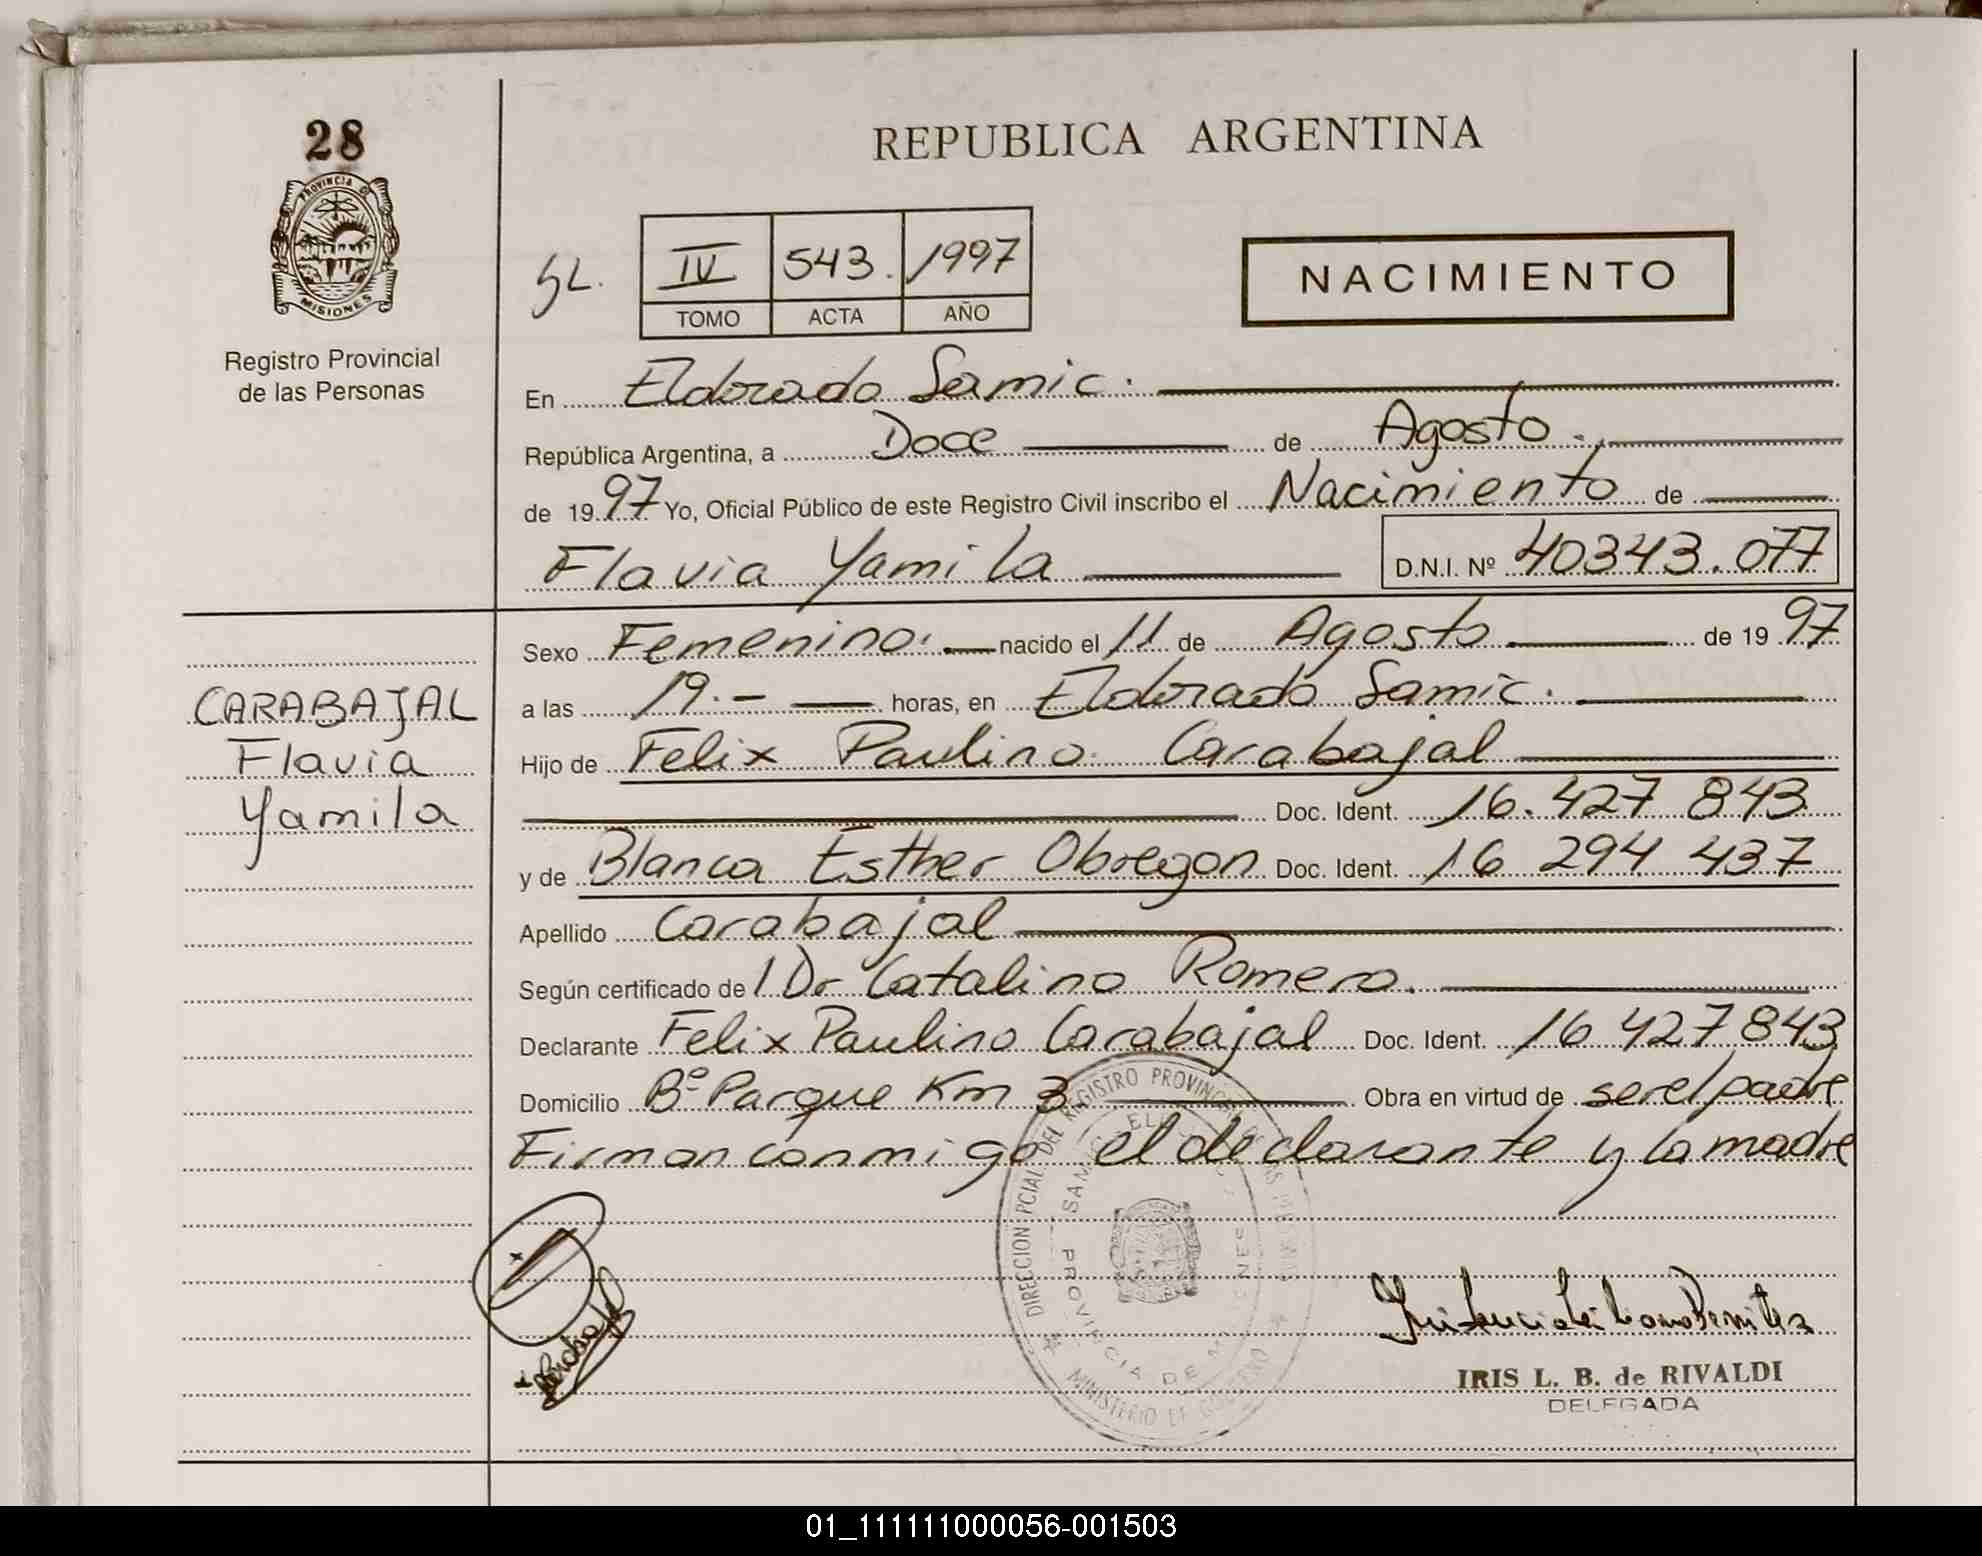 28
PROVINCIA DE
MISIONES
Registro Provincial
de las Personas
REPUBLICA ARGENTINA
SL. IV 543. 1997
TOMO ACTA AÑO
NACIMIENTO
En Eldorado Samic.
República Argentina, a Doce de Agosto.
de 1997 Yo, Oficial Público de este Registro Civil inscribo el Nacimiento de
Flavia Yamila D.N.I. Nº 40343.077
Sexo Femenino. nacido el 11 de Agosto de 1997
a las 19.- horas, en Eldorado Samic.
Hijo de Felix Paulino Carabajal
Doc. Ident. 16.427 843
y de Blanca Esther Obregon Doc. Ident. 16 294 437
Apellido Carabajal
Según certificado del Dr Catalino Romero.
Declarante Felix Paulino Carabajal Doc. Ident. 16 427 843
Domicilio Bº Parque Km 3 Obra en virtud de ser el padre
Firman conmigo el declarante y la madre
CARABAJAL
Flavia
Yamila
DIRECCION PCIAL DEL REGISTRO PROVINCIAL DE LAS PERSONAS
MINISTERIO DE GOBIERNO
SAMIC
PROVINCIA DE MISIONES
IRIS L. B. de RIVALDI
DELEGADA
01_111111000056-001503